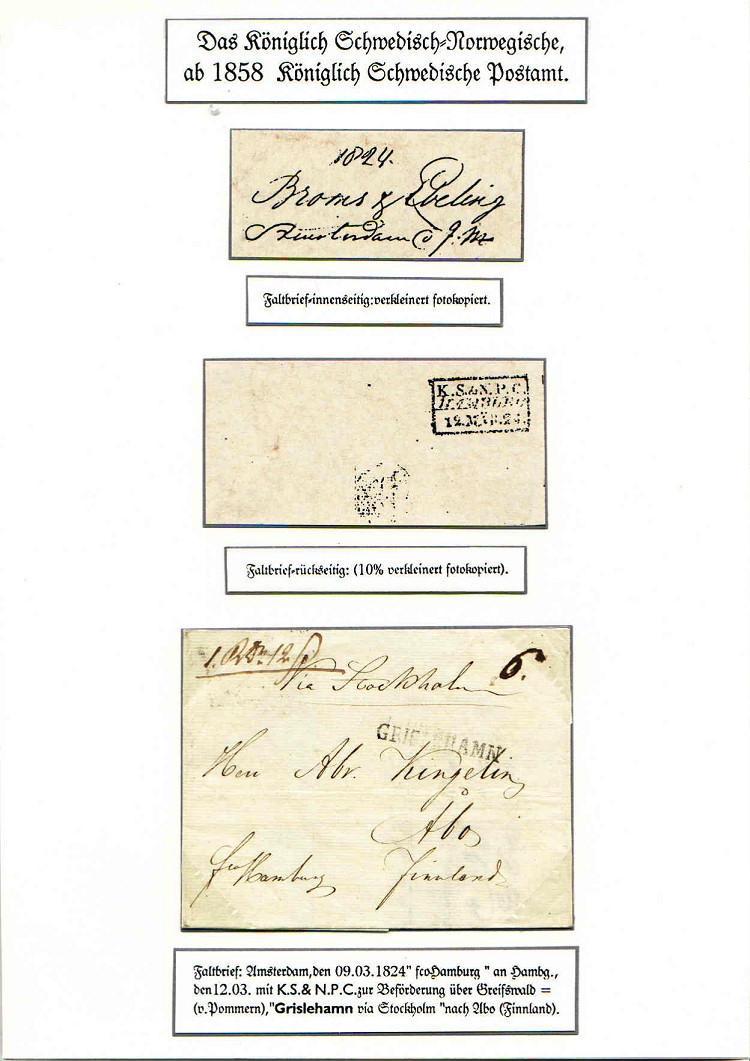 Das Königlich Schwedisch-Norwegische,
ab 1858 Königlich Schwedische Postamt.
1824.
Broms & Ebeling
Amsterdam
Faltbrief-innenseitig:verkleinert fotokopiert.
K.S.&N.P.C.
HAMBURG
12.MÄR.24
Faltbrief-rückseitig: (10% verkleinert fotokopiert).
6.
Via Stockholm
GRISLEHAMN
Herr Abr. Kingelin
Åbo
fco Hamburg Finnland
Faltbrief: Amsterdam,den 09.03.1824" fcoHamburg " an Hambg.,
den12.03. mit K.S.& N.P.C.zur Beförderung über Greifswald =
(v.Pommern),"Grislehamn via Stockholm "nach Abo (Finnland).